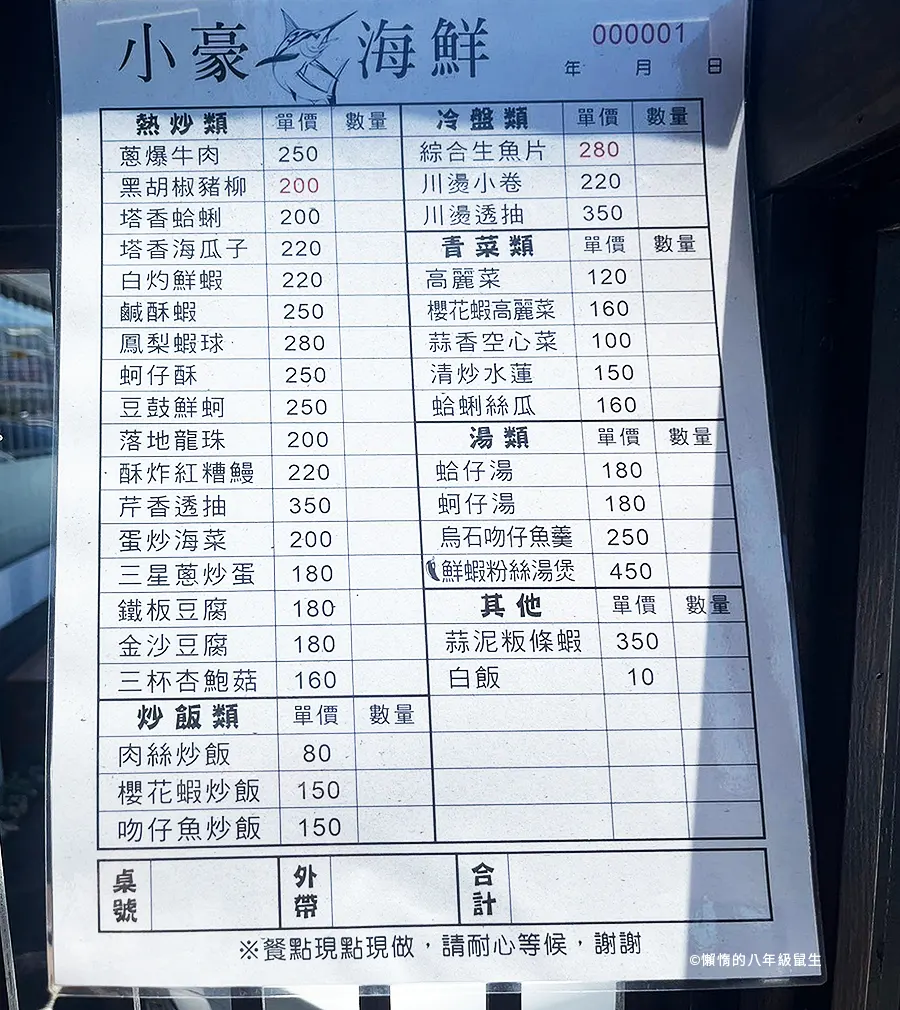 小豪海鮮
000001
年 月 日
熱炒類 單價 數量
蔥爆牛肉 250
黑胡椒豬柳 200
塔香蛤蜊 200
塔香海瓜子 220
白灼鮮蝦 220
鹹酥蝦 250
鳳梨蝦球 280
蚵仔酥 250
豆鼓鮮蚵 250
落地龍珠 200
酥炸紅糟鰻 220
芹香透抽 350
蛋炒海菜 200
三星蔥炒蛋 180
鐵板豆腐 180
金沙豆腐 180
三杯杏鮑菇 160
炒飯類 單價 數量
肉絲炒飯 80
櫻花蝦炒飯 150
吻仔魚炒飯 150
冷盤類 單價 數量
綜合生魚片 280
川燙小卷 220
川燙透抽 350
青菜類 單價 數量
高麗菜 120
櫻花蝦高麗菜 160
蒜香空心菜 100
清炒水蓮 150
蛤蜊絲瓜 160
湯類 單價 數量
蛤仔湯 180
蚵仔湯 180
烏石吻仔魚羹 250
鮮蝦粉絲湯煲 450
其他 單價 數量
蒜泥粄條蝦 350
白飯 10
桌號 外帶 合計
※餐點現點現做，請耐心等候，謝謝
©懶惰的八年級鼠生